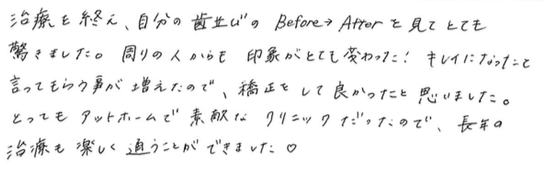 治療を終え、自分の歯並びの Before→After を見てとても
驚きました。周りの人からも 印象がとても変わった！キレイになったと
言ってもらう事が増えたので、矯正をして良かったと思いました。
とってもアットホームで素敵なクリニックだったので、長年の
治療も楽しく通うことができました♡